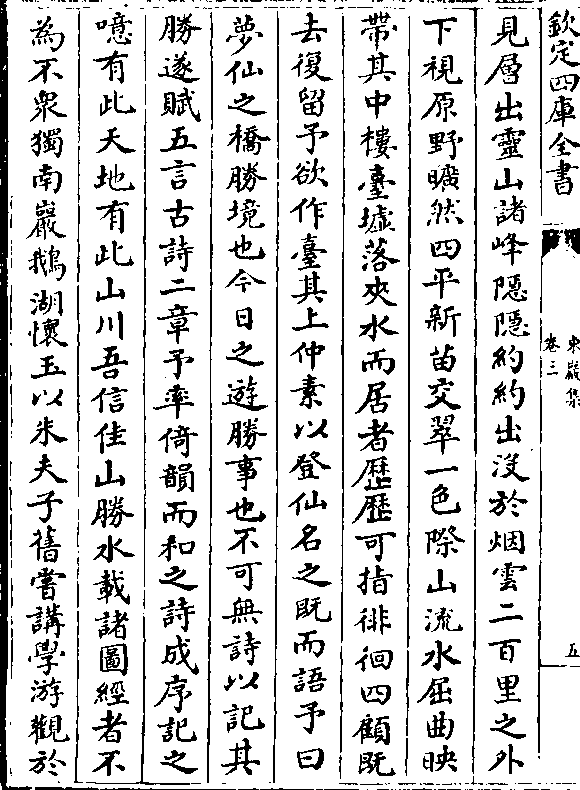 欽定四庫全書
東巖集
卷三
五
見層出靈山諸峰隠隠約約出沒於烟雲二百里之外
下視原野曠然四平新苗交翠一色際山流水屈曲映
帶其中樓臺墟落夾水而居者歷歷可指徘徊四顧既
去復留予欲作臺其上仲素以登仙名之既而語予曰
夢仙之橋勝境也今日之遊勝事也不可無詩以記其
勝遂賦五言古詩二章予率倚韻而和之詩成序記之
噫有此天地有此山川吾信佳山勝水載諸圖經者不
為不衆獨南巖鵝湖懷玉以朱夫子舊嘗講學游觀於